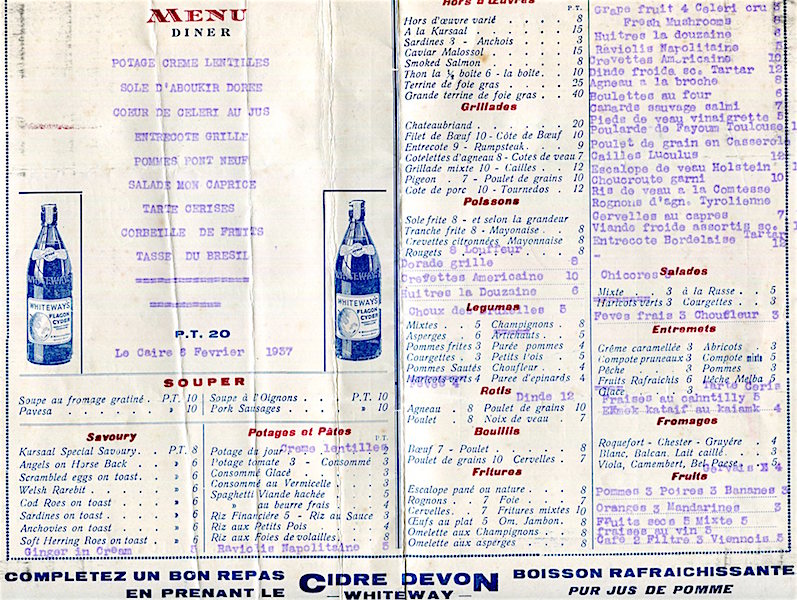 MENU
DINER
POTAGE CREME LENTILLES
SOLE D'ABOUKIR DOREE
COEUR DE CELERI AU JUS
ENTRECOTE GRILLE
POMMES PONT NEUF
SALADE MON CAPRICE
TARTE CERISES
CORBEILLE DE FRUITS
TASSE DU BRESIL
P.T. 20
Le Caire 8 Fevrier 1937
WHITEWAY'S
FLAGON CYDER
WHITEWAY'S
FLAGON CYDER
SOUPER
Soupe au fromage gratiné . P.T. 10
Pavesa . . . . . » 10
Soupe à l'Oignons . . . P.T. 10
Pork Sausages . . . » 10
Savoury
Kursaal Special Savoury . P.T. 8
Angels on Horse Back . . » 6
Scrambled eggs on toast . » 6
Welsh Rarebit . . . » 6
Cod Roes on toast . . » 6
Sardines on toast . . . » 6
Anchovies on toast . . » 6
Soft Herring Roes on toast . » 6
Ginger in Cream 5
Potages et Pâtes
P.T.
Potage du jour Creme lentilles
Potage tomate 3 - Consommé 3
Consommé Glacé . . . 3
Consommé au Vermicelle . . 3
Spaghetti Viande hachée . 5
» au beurre frais . . 4
Riz Financière 5 - Riz au Sauce 3
Riz aux Petits Pois . . 4
Riz aux Foies de volailles . . 8
Raviolis Napolitaine 5
Hors d'Œuvres
P.T.
Hors d'œuvre varié . . . 8
A la Kursaal . . . 15
Sardines 3 - Anchois . . 3
Caviar Malossol . . . 15
Smoked Salmon . . . 8
Thon la ½ boite 6 - la boîte . 10
Terrine de foie gras . . . 25
Grande terrine de foie gras . . 40
Grillades
Chateaubriand . . . . 20
Filet de Bœuf 10 - Côte de Bœuf 10
Entrecote 9 - Rumpsteak . . 9
Cotelettes d'agneau 8 - Cotes de veau 7
Grillade mixte 10 - Cailles . . 12
Pigeon . 7 - Poulet de grains 10
Cote de porc 10 - Tournedos . 12
Poissons
Sole frite 8 - et selon la grandeur
Tranche frite 8 - Mayonaise . 8
Crevettes citronnées Mayonnaise 8
Rougets 8 Louffeur 8
Dorade grille 8
Crevettes Americaine 10
Huitres la Douzaine 6
Legumes
Choux de Bruxelles 5
Mixtes . . 5 Champignons . 8
Asperges . 6 Artichauts . . 5
Pommes frites 3 Purée pommes 4
Courgettes . 3 Petits Pois . 5
Pommes Sautés Choufleur . . 4
Haricots verts 4 Puree d'épinards 4
Feves 4
Rotis
Dinde 12
Agneau . 8 Poulet de grains 10
Poulet . 8 Noix de veau . 7
Bouillis
Bœuf 7 - Poulet . . . 8
Poulet de grains 10 Cervelles . 7
Fritures
Escalope pané ou nature . . 8
Rognons . 7 Foie . . . 7
Cervelles . 7 Fritures mixtes 10
Œufs au plat 5 Om. Jambon . 8
Omelette aux Champignons . . 8
Omelette aux asperges . . 8
Grape fruit 4 Celeri cru 3
Fresh Mushrooms 8
Huitres la douzaine 6
Raviolis Napolitaine 5
Crevettes Americaine 10
Dinde froide sc. Tartar 12
Agneau a la broche 8
Boulettes au four 6
Canards sauvage salmi 7
Pieds de veau vinaigrette 5
Poularde de Fayoum Toulouse
Poulet de grain en Casserole
Cailles Luculus 12
Escalope de veau Holstein
Choucroute garni 10
Ris de veau a la Comtesse
Rognons d'agn. Tyrolienne
Cervelles au capres 7
Viande froide assortis sc. Tartar
Entrecote Bordelaise 12
Salades
Chicores 3
Mixte . . 3 à la Russe . . 5
Haricots verts 3 Courgettes . . 3
Feves frais 3 Choufleur 3
Entremets
Créme caramellée 3 Abricots . . 3
Compote pruneaux 3 Compote mixte 5
Pêche . . 3 Pommes . . 3
Fruits Rafraichis 6 Pêche Melba 5
Glace 3 Tarte Ceris
Fraises au cahntilly 5
EKmek kataif au kaiamk 4
Fromages
Roquefort - Chester - Gruyére . 4
Blanc, Balcan. Lait caillé . . 3
Viola, Camembert, Bel Paese . 3
Gervais N 4
Fruits
Pommes 3 Poires 3 Bananes 3
Oranges 3 Mandarines 3
Fruits secs 5 Mixte 5
fraises au vin 5
Cafe 2 Filtre 3 Viennois 5
COMPLETEZ UN BON REPAS
EN PRENANT LE
CIDRE DEVON
—WHITEWAY—
BOISSON RAFRAICHISSANTE
PUR JUS DE POMME